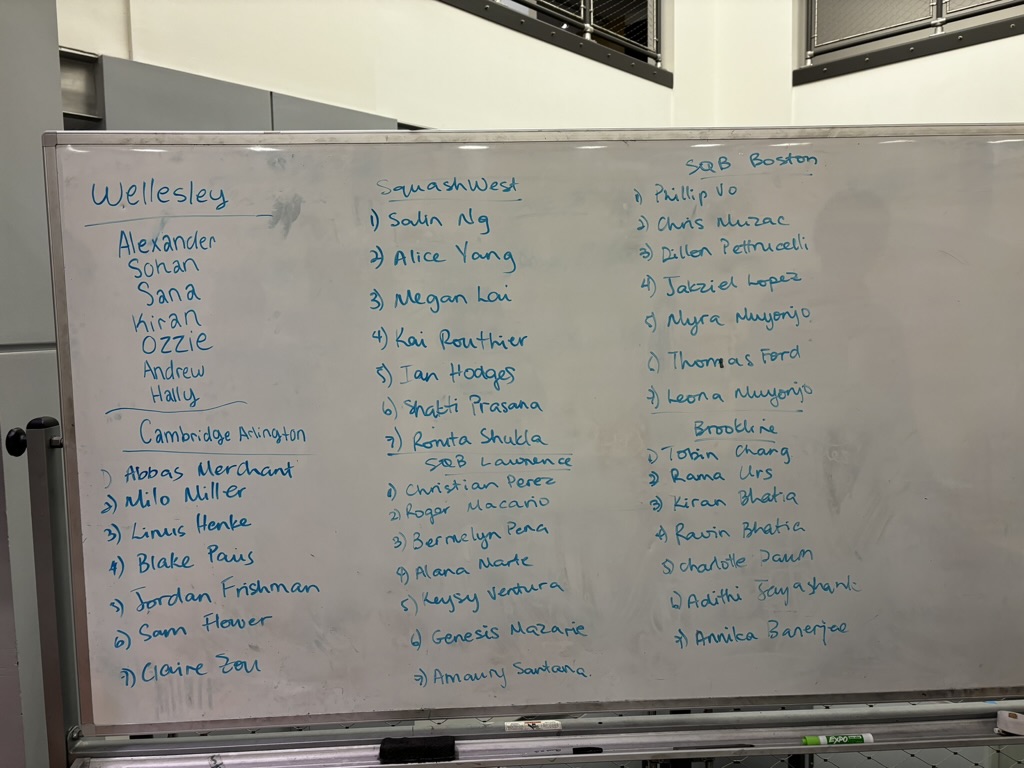 Wellesley
Alexander
Sohan
Sana
Kiran
Ozzie
Andrew
Hally
Cambridge Arlington
1) Abbas Merchant
2) Milo Miller
3) Linus Henke
4) Blake Paiis
5) Jordan Frishman
6) Sam Flower
7) Claire Zou
SquashWest
1) Salin Ng
2) Alice Yang
3) Megan Lai
4) Kai Routhier
5) Ian Hodges
6) Shakti Prasana
7) Romita Shukla
SQB Lawrence
1) Christian Perez
2) Roger Macario
3) Bernelyn Pena
4) Alana Marte
5) Keysy Ventura
6) Genesis Mazarie
7) Amaury Santana
SQB Boston
1) Phillip Vo
2) Chris Muzac
3) Dillen Pettrucelli
4) Jakziel Lopez
5) Myra Muyonjo
6) Thomas Ford
7) Leona Muyonjo
Brookline
1) Tobin Chang
2) Rama Urs
3) Kiran Bhatia
4) Ravin Bhatia
5) Charlotte Daum
6) Adithi
7) Annika Banerjee
EXPO